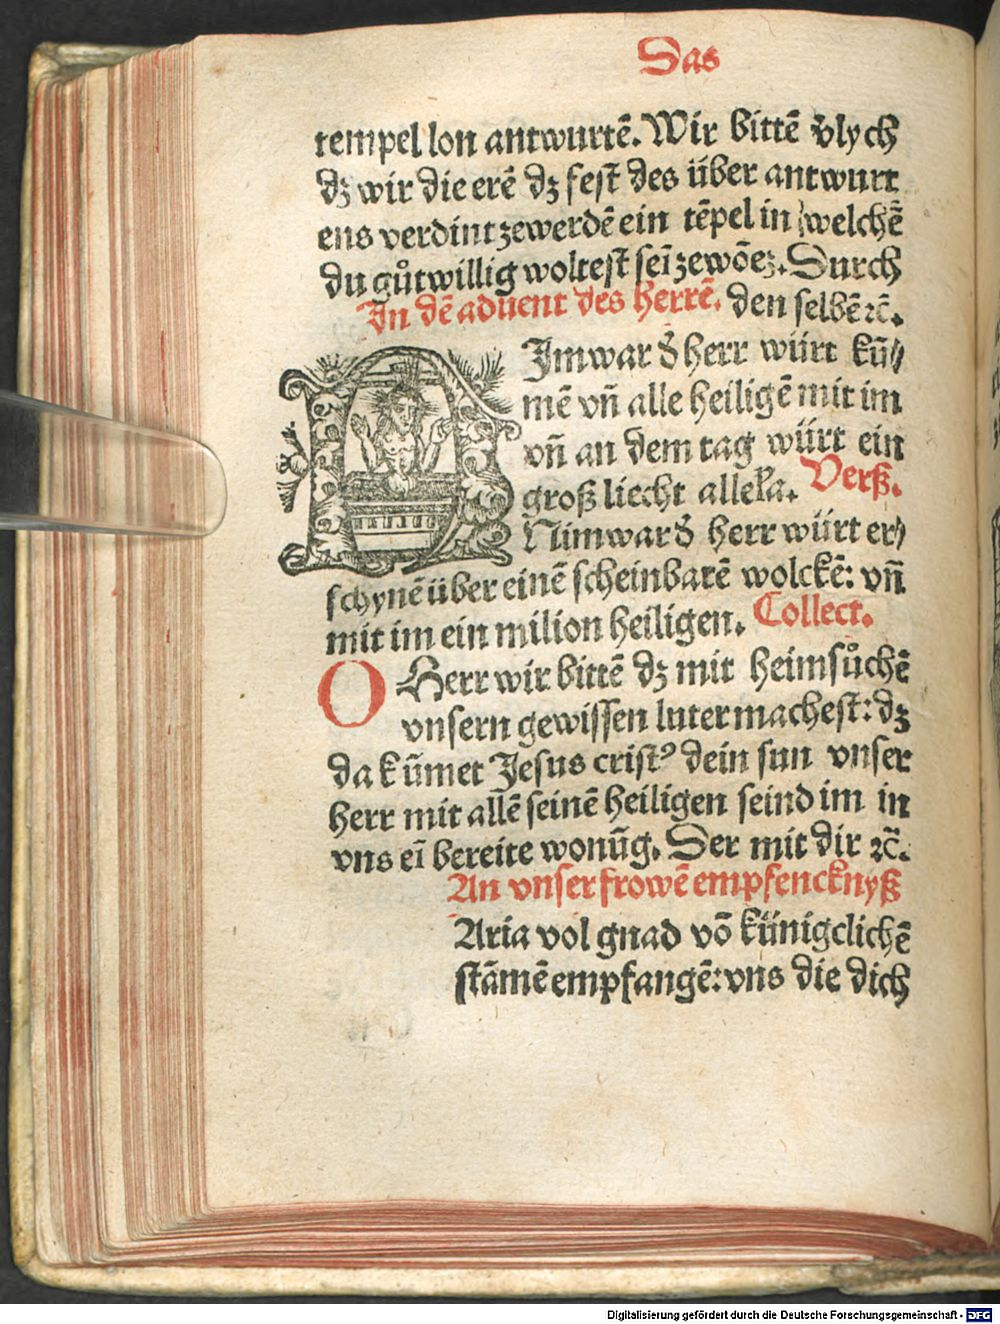 Das
tempel lon antwurtē. Wir bittē v̄lych
dz wir die erē dz fest̄ des über antwurt
ens verdint zewerdē ein tēpel in welchē
du gůtwillig woltest seī zewōez. Durch
In dē aduent des herrē. den selbē ⁊c̄.
Nimwar d̄ herr würt kū⸗
mē vn̄ alle heiligē mit im
vn̄ an dem tag würt ein
groß liecht Verß.
Nimwar d̄ herr würt er⸗
schynē über einē scheinbarē wolckē: vn̄
mit im ein milion heiligen. Collect.
O Herr wir bittē dz mit heimsůchē
vnsern gewissen luter machest: dz
da kūmet Jesus cristꝰ dein sun vnser
herr mit allē seinē heiligen seind im in
vns eī bereite wonūg. Der mit dir ⁊c̄.
An vnser frowē empfencknyß
Aria vol gnad vō künigclichē
stāmē empfangē: vns die dich
Digitalisierung gefördert durch die Deutsche Forschungsgemeinschaft - DFG